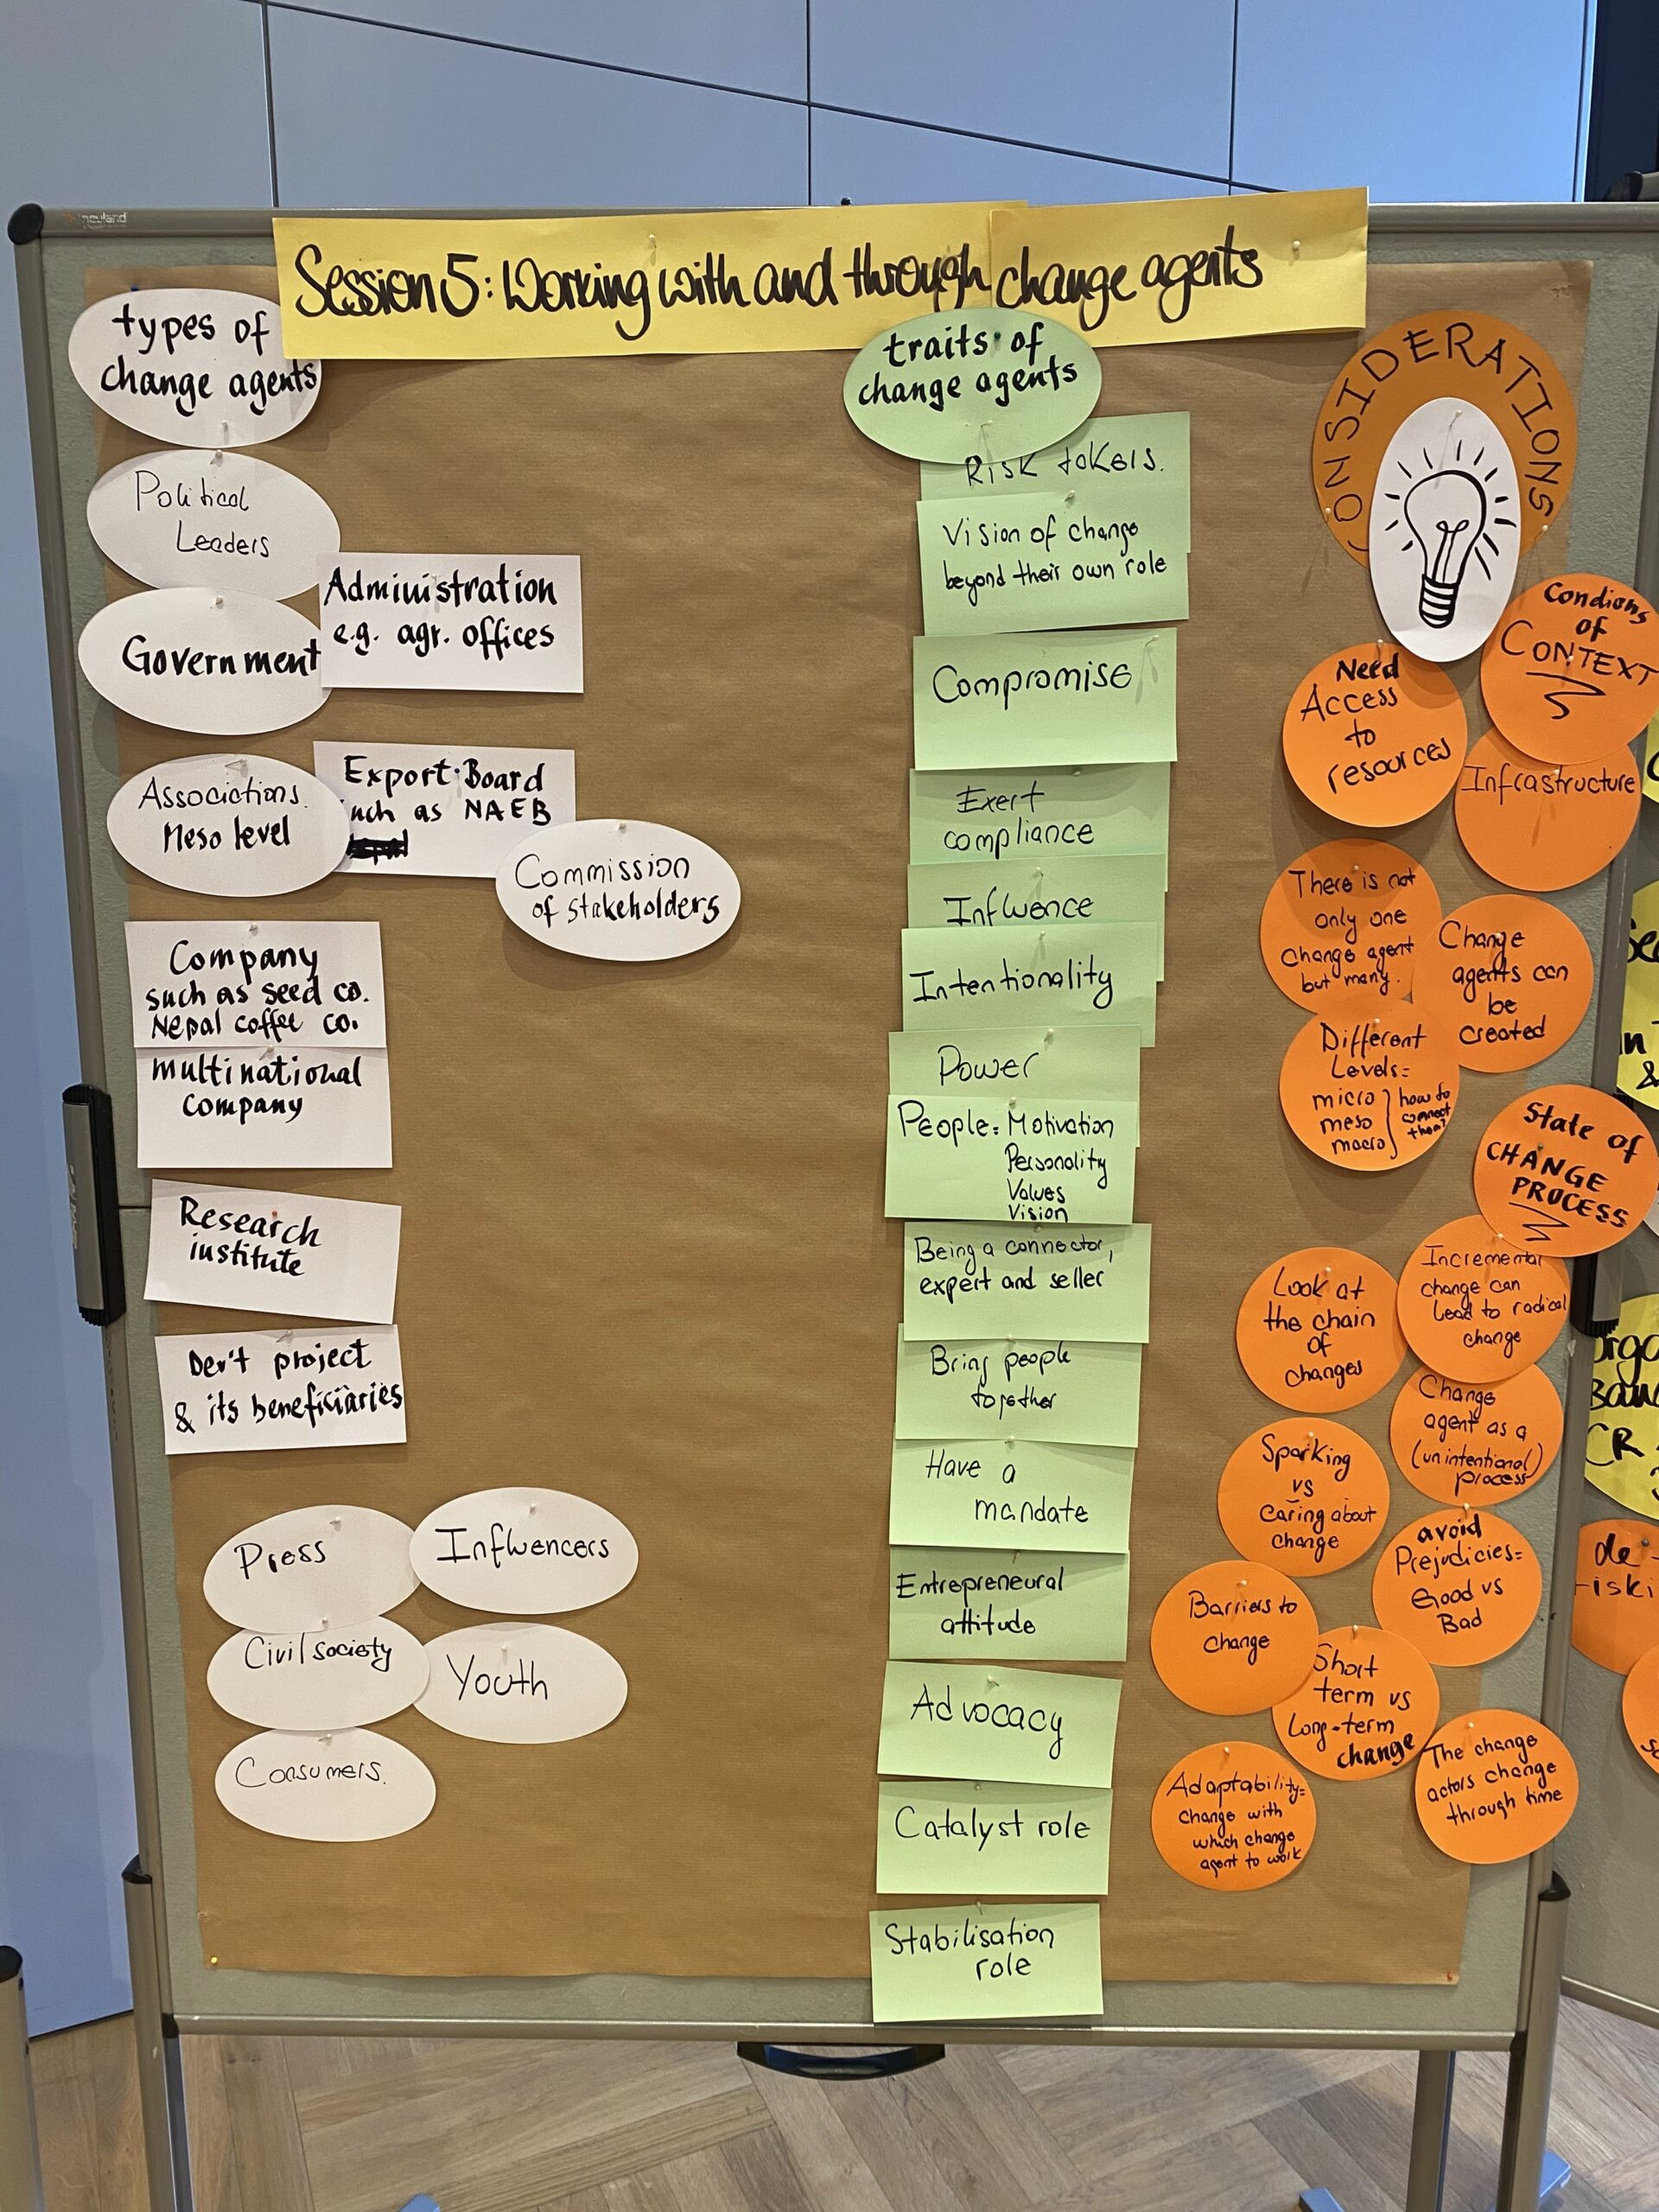 Session 5: Working with and through change agents
types of
change agents
Political
Leaders
Government
Administration
e.g. agr. offices
Associations
Meso level
Export Board
such as NAEB
Commission
of stakeholders
Company
such as seed co.
Nepal coffee co.
multinational
company
Research
institute
Dev't project
& its beneficiaries
Press
Influencers
Civil society
Youth
Consumers.
traits of
change agents
Risk takers.
Vision of change
beyond their own role
Compromise
Exert
compliance
Influence
Intentionality
Power
People: Motivation
Personality
Values
Vision
Being a connector,
expert and seller
Bring people
together
Have a
mandate
Entrepreneurial
attitude
Advocacy
Catalyst role
Stabilisation
role
CONSIDERATIONS
Condions
of
CONTEXT
Need
Access
to
resources
Infrastructure
There is not
only one
change agent
but many.
Change
agents can
be
created
Different
Levels:
micro
meso
macro
how to
connect
them?
State of
CHANGE
PROCESS
Incremental
change can
lead to radical
change
Look at
the chain
of
changes
Change
agent as a
(unintentional)
process
Sparking
vs
Caring about
change
avoid
Prejudicies:
Good vs
Bad
Barriers to
change
Short
term vs
Long-term
change
The change
actors change
through time
Adaptability:
change with
which change
agent to work
CR
de-